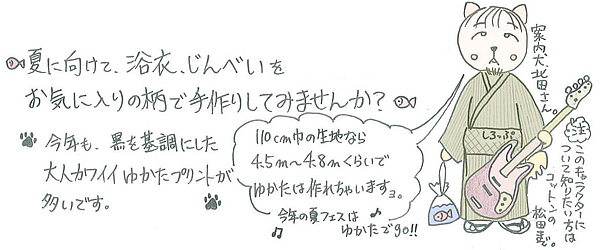 夏に向けて、浴衣、じんべいを
お気に入りの柄で手作りしてみませんか?
今年も、黒を基調にした
大人カワイイゆかたプリントが
多いです。
110cm巾の生地なら
4.5m〜4.8mくらいで
ゆかたは作れちゃいますョ。
今年の夏フェスは
ゆかたでgo!!
しろっぷ
案内犬、北田さん。
注
このキャラクターに
ついて知りたい方は
コットンの
松田まで。